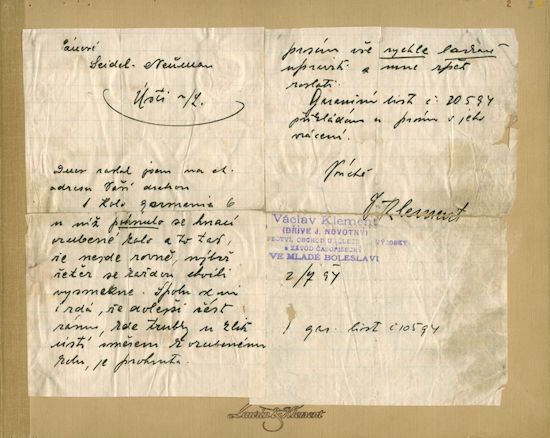 Pánové
Seidel - Neüman
Ústí n/L.
Dnes zaslal jsem na ct.
adresu Vaší drahou
1 Kolo germania 6
u níž pohnulo se hnací
ozubené kolo a to tak,
že nejde rovně, nýbrž
řetěz se každou chvíli
vysmekne. Spolu
zdá, že dolejší část
rámu, kde trubky u klik
ústí směrem k ozubenému
kolu, je prohnuta.
prosím vše rychle laskavě
upraviti a mně zpět
zaslati.
Garanční list č. 20594
přikládám a prosím o jeho
vrácení.
V úctě
V Klement
Václav Klement
(DŘÍVE J. NOVOTNÝ)
OBCHOD VÝLOHKY
A ZÁVOD
VE MLADÉ BOLESLAVI
2/7 94
1 gar. list č 10594
Laurin & Klement
2